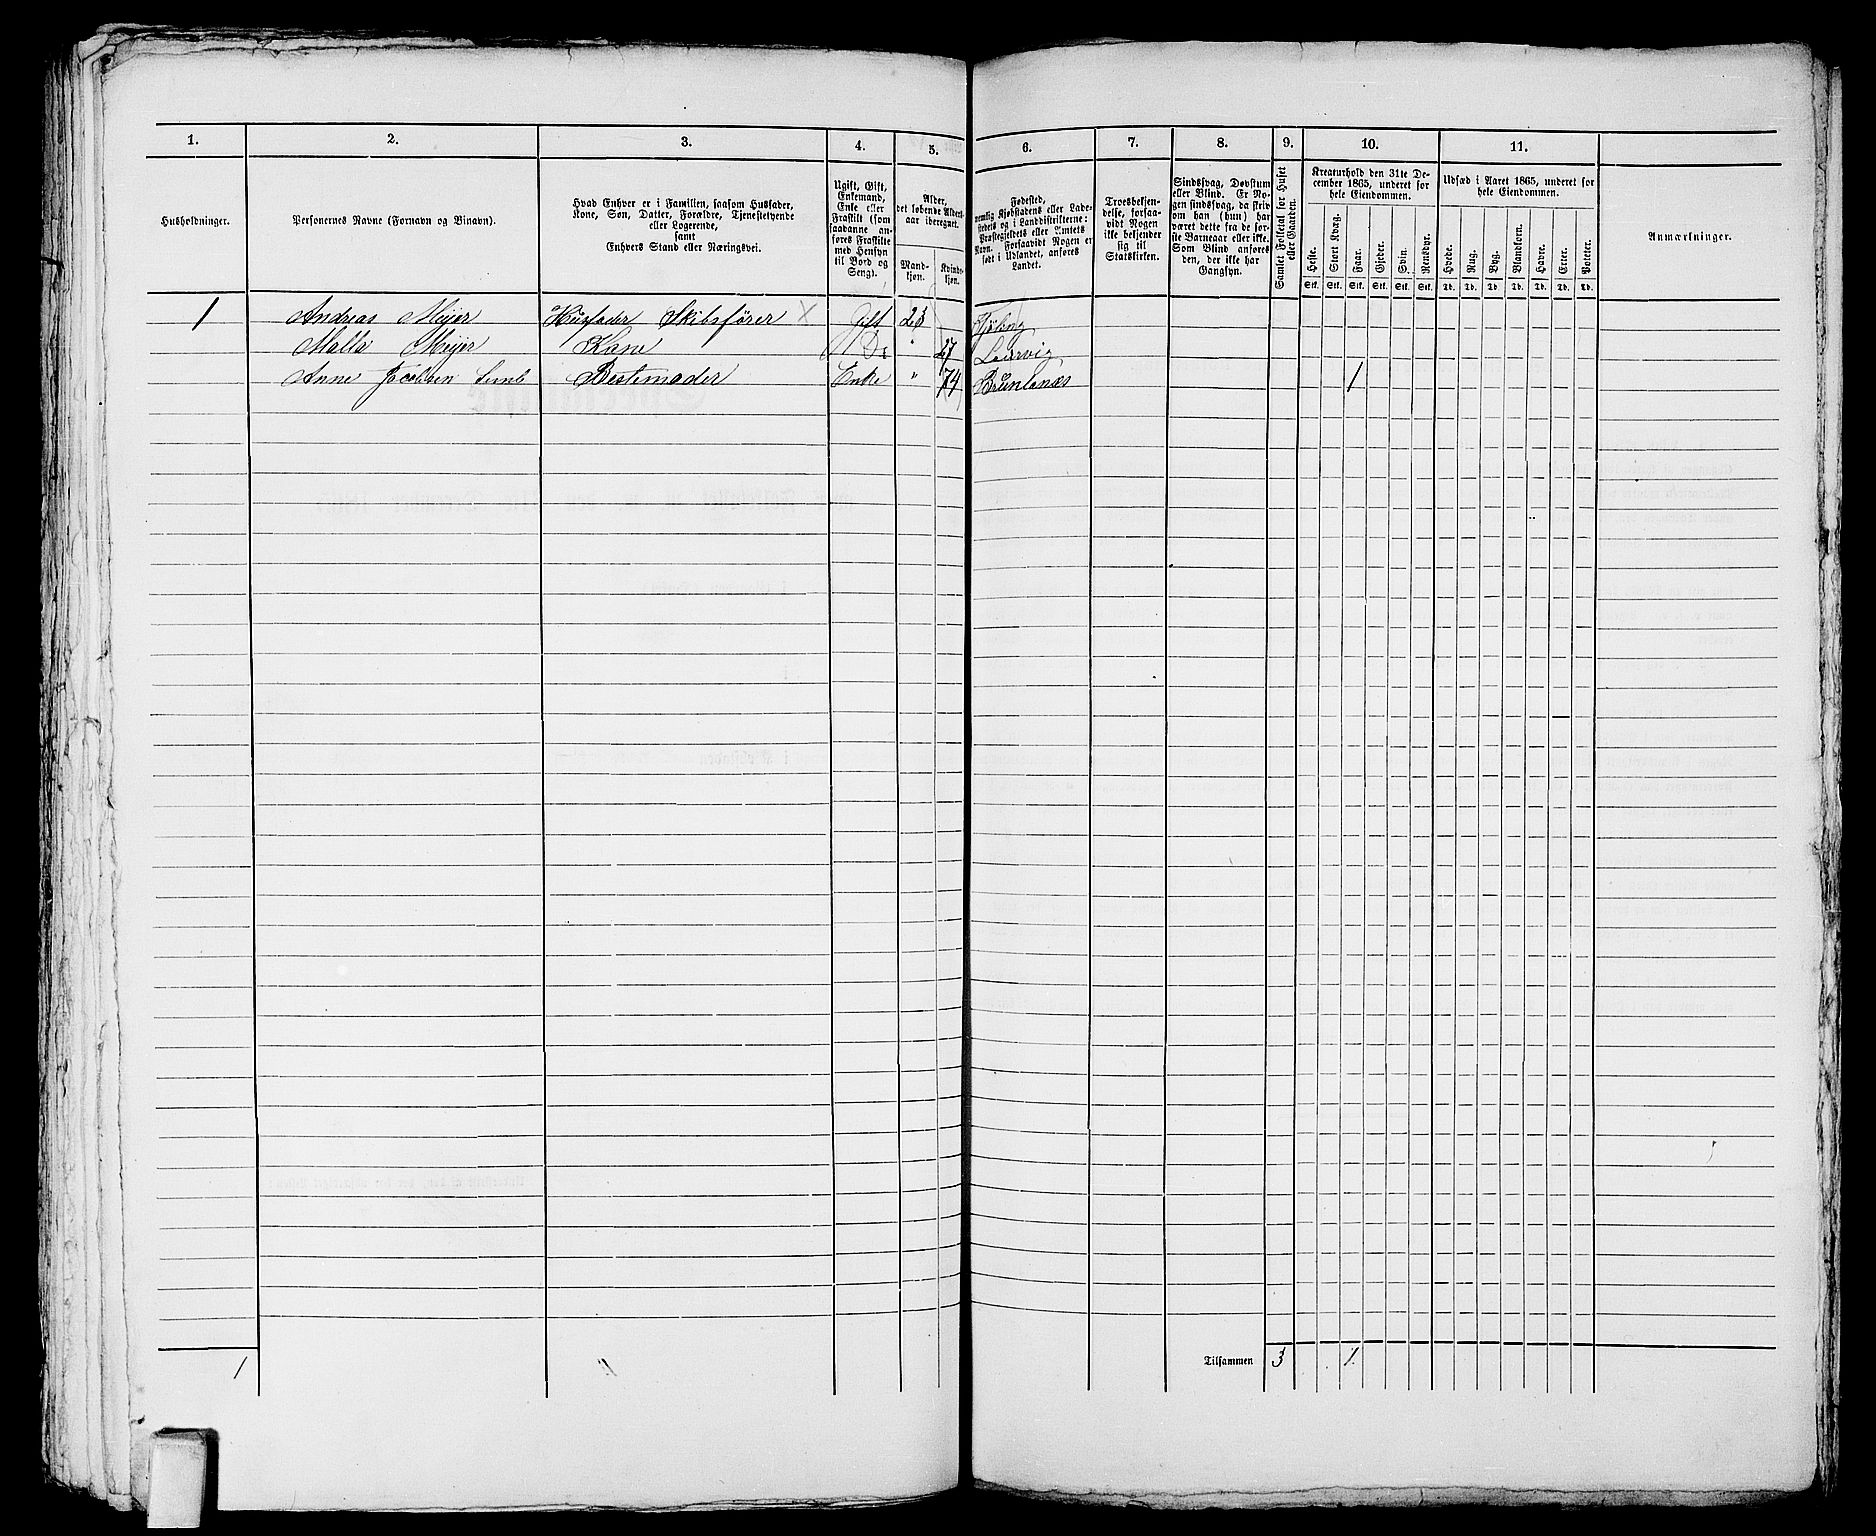 1. 2. 3. 4. 5. 6. 7. 8. 9. 10. 11.
Husholdninger.
Personernes Navne (Fornavn og Binavn).
Hvad Enhver er i Familien, saasom Husfader,
Kone, Søn, Datter, Forældre, Tjenestetyende
eller Logerende,
samt
Enhvers Stand eller Næringsvei.
Ugift, Gift,
Enkemand,
Enke eller
Fraskilt (som
saadanne an-
føres Fraskilte
med Hensyn
til Bord og
Seng).
Alder,
det løbende Alders-
aar iberegnet.
Mand-
kjøn.
Kvinde-
kjøn.
Fødested,
nemlig Kjøbstadens eller Lade-
stedets og i Landdistrikterne:
Præstegjeldets eller Amtets
Navn. Forsaavidt Nogen er
født i Udlandet, anføres
Landet.
Troesbekjen-
delse, forsaa-
vidt Nogen
ikke bekjender
sig til
Statskirken.
Sindssvag, Døvstum
eller Blind. Er No-
gen sindssvag, da skriv
om han (hun) har
været dette fra de før-
ste Barneaar eller ikke.
Som Blind anføres
den, der ikke har
Gangsyn.
Samlet Folketal for Huset
eller Gaarden.
Kreaturhold den 31te De-
cember 1865, underet for
hele Eiendommen.
Heste. Stort Kvæg. Faar. Gjeder. Svin. Rensdyr.
Stk. Stk. Stk. Stk. Stk. Stk.
Udsæd i Aaret 1865, underet for
hele Eiendommen.
Hvede. Rug. Byg. Blandkorn. Havre. Erter. Poteter.
Td. Td. Td. Td. Td. Td. Td.
Anmærkninger.
1 Andreas Meyer Husfader Skibsfører X Gift 23 Tjøling
Malla Meyer Kone Do " 27 Laurvig
Anne Jacobsen Enke " 74 Brunlanæs 1
Bestemoder
1 Tilsammen 3 1